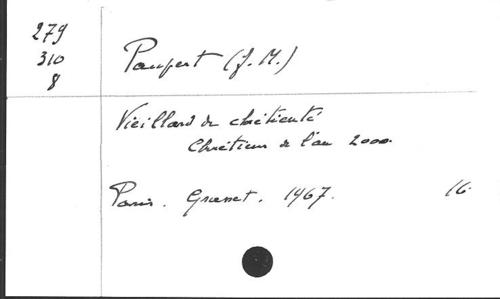 279
310
8
Paupert (J. M.)
Vieillard de chrétienté
Chrétiens de l'an 2000.
Paris. Grasset. 1967. 16.